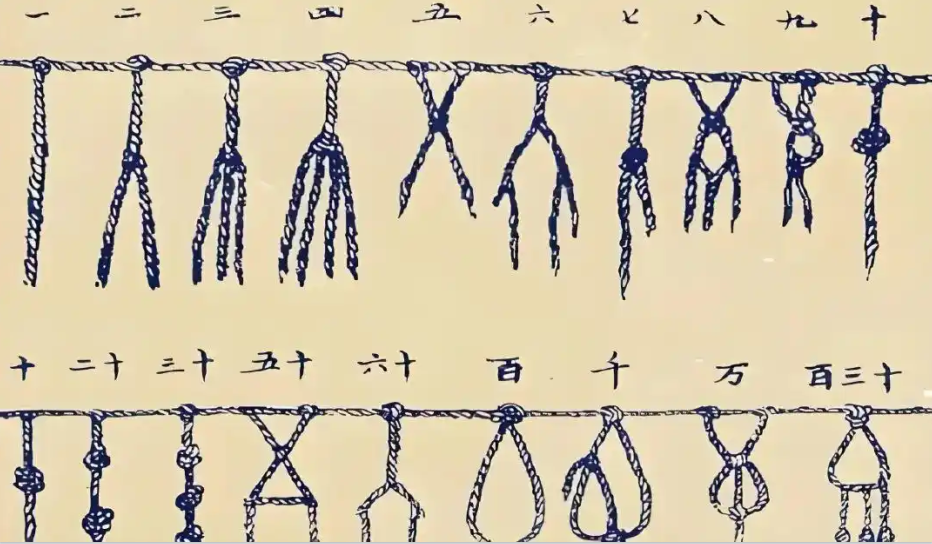 一 二 三 四 五 六 七 八 九 十
十 二十 三十 五十 六十 百 千 万 百三十